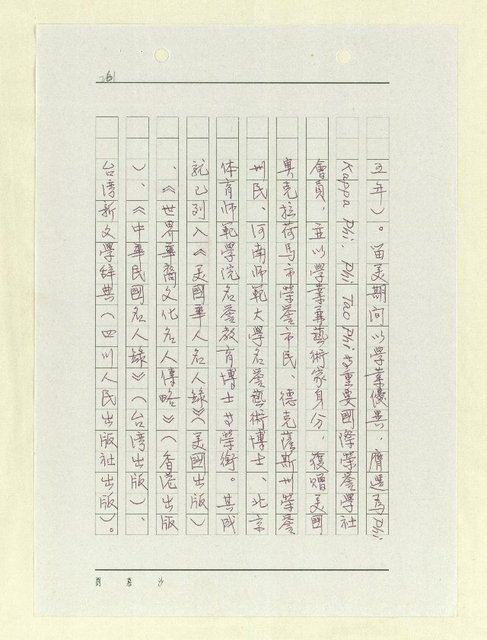 261
五年)。留美期间以學業優異,膺選為Phi
Kappa Phi. Phi Tao Phi等重要國際榮譽學社
會員,並以學業兼藝術家身分,復贈美國
奧克拉荷馬市榮譽市民、德克薩斯州榮譽
州民、河南师範大學名譽藝術博士、北京
体育师範學院名譽教育博士等榮銜。其成
就已列入《美國華人名人録》(美國出版)
、《世界華裔文化名人傳略》(香港出版
)、《中華民國名人録》(台湾出版)、
台湾新文學辞典(四川人民出版社出版)。